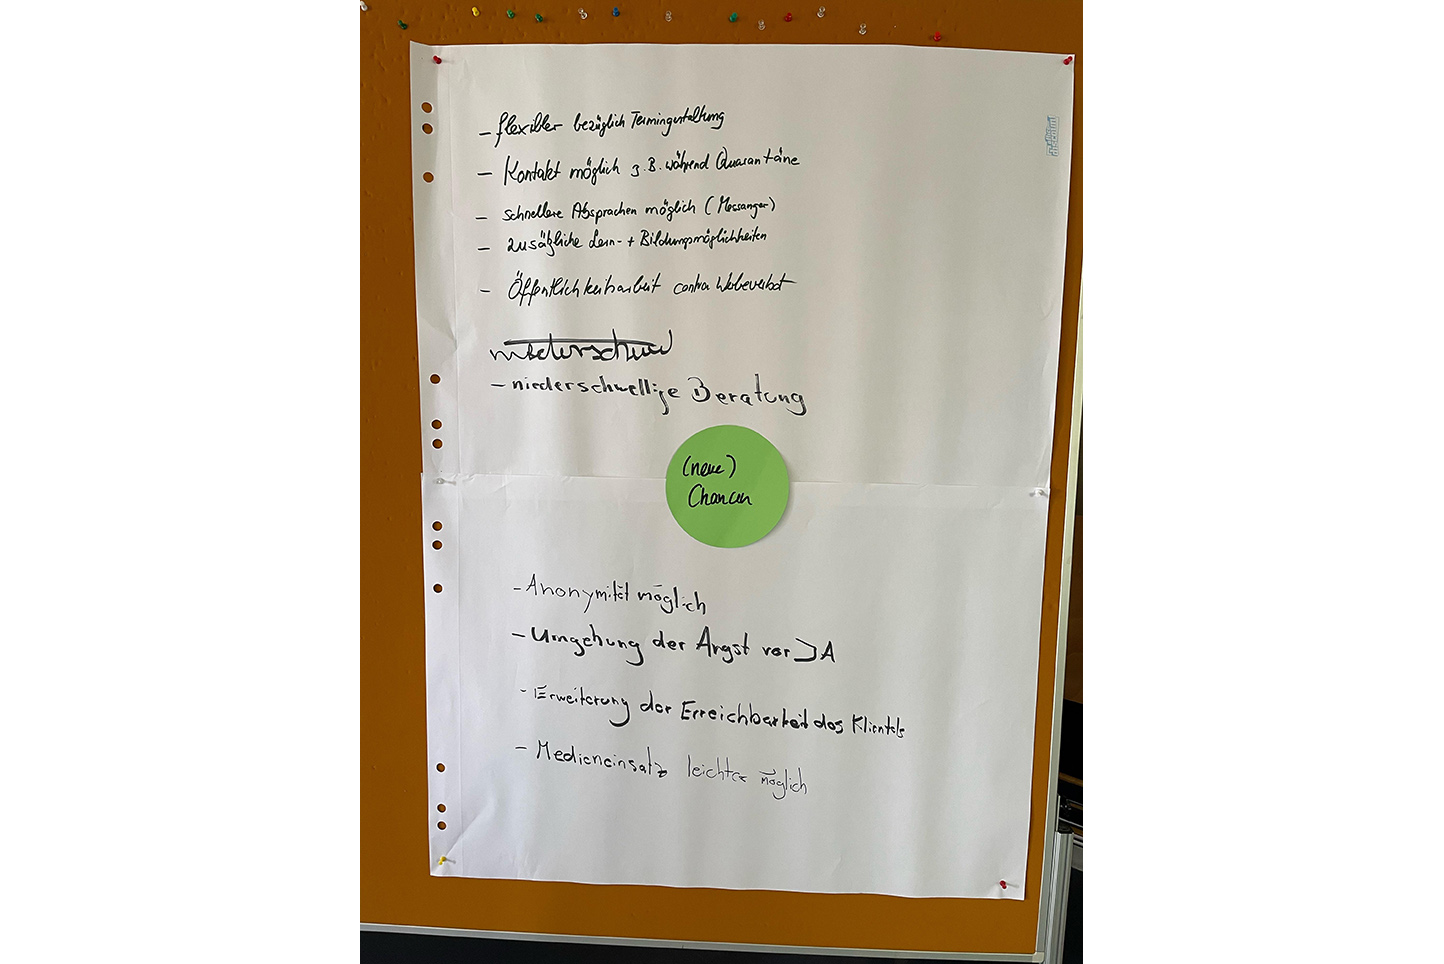 - flexibler bezüglich Termingestaltung
- Kontakt möglich z.B. während Quarantäne
- schnellere Absprachen möglich (Messanger)
- zusätzliche Lern- + Bildungsmöglichkeiten
- Öffentlichkeitsarbeit contra Werbeverbot
- niederschwellige Beratung
(neue)
Chancen
- Anonymität möglich
- Umgehung der Angst vor JA
- Erweiterung der Erreichbarkeit des Klientels
- Medieneinsatz leichter möglich